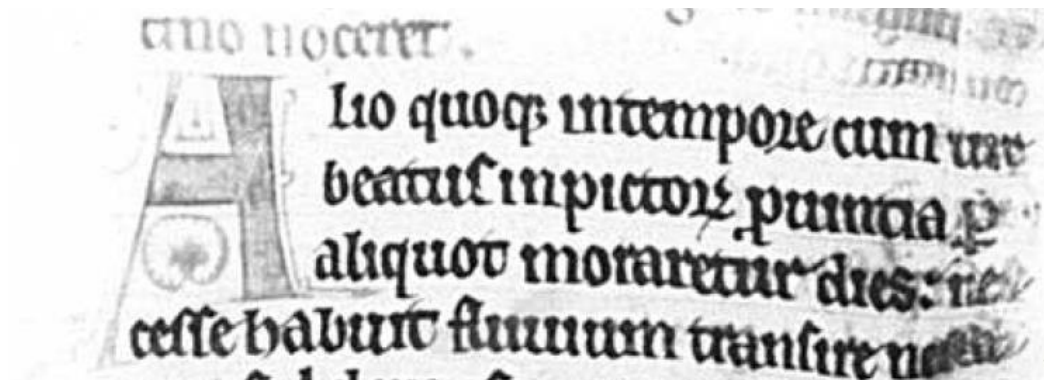 cino noceret.
Alio quoq; intempore cum uir
beatus inpictoꝝ ꝓuincia ꝑ
aliquot moraretur dies: ne
cesse habuit fluuium transire